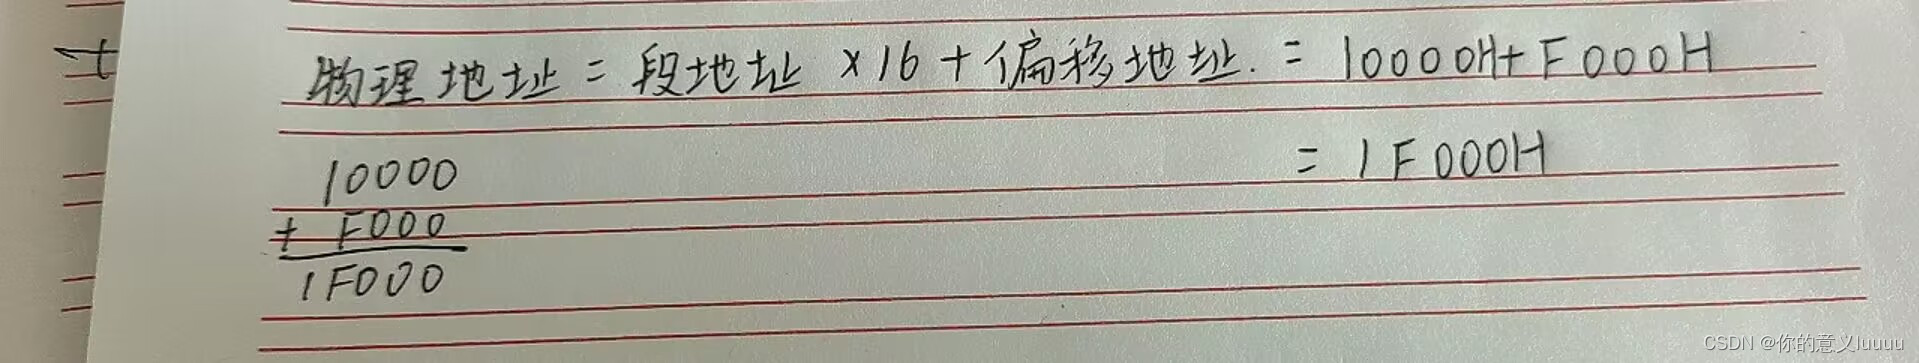 物理地址 = 段地址 ×16 + 偏移地址. = 10000H + F000H
= 1F000H
10000
+ F000
1F000
CSDN @你的意义luuuu